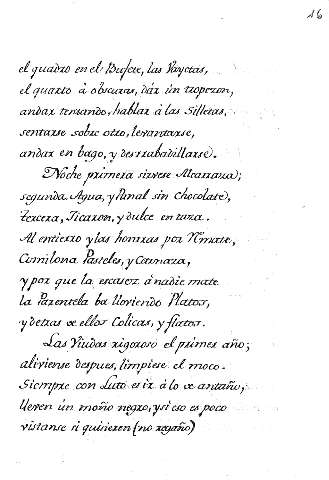 16
el quadro en el Bufete, las Vayetas,
el quarto à obscuras, dár ún tropezon,
andar tentando, hablar à las Silletas,
sentarse sobre otro, levantarse,
andar en bago, y
Noche primera sirvese Alcarraza;
segunda Agua, y Panal sin Chocolate,
tercera, Jicaron, y dulce en taza.
Al entierro y las honrras por
Comilona Pasteles, y Carnaza,
y por que la escasez à nadie mate
la Parentela ba lloviendo Platos,
y detras de ellos Colicas, y flatos.
Las Viudas rigoroso el primer año;
aliviense despues, limpiese el moco.
Siempre con Luto es ir à lo de antaño;
lleven ún moño negro, y si eso es poco
vistanse si quisieren (no regaño)